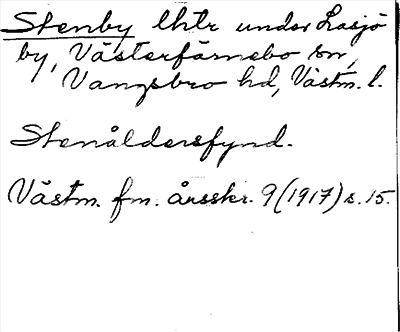 Stenby lhtr under Lasjö
by, Västerfärnebo sn,
Vangsbro hd, Västm. l.
Stenåldersfynd.
Västm. fm. årsskr. 9 (1917) s. 15.